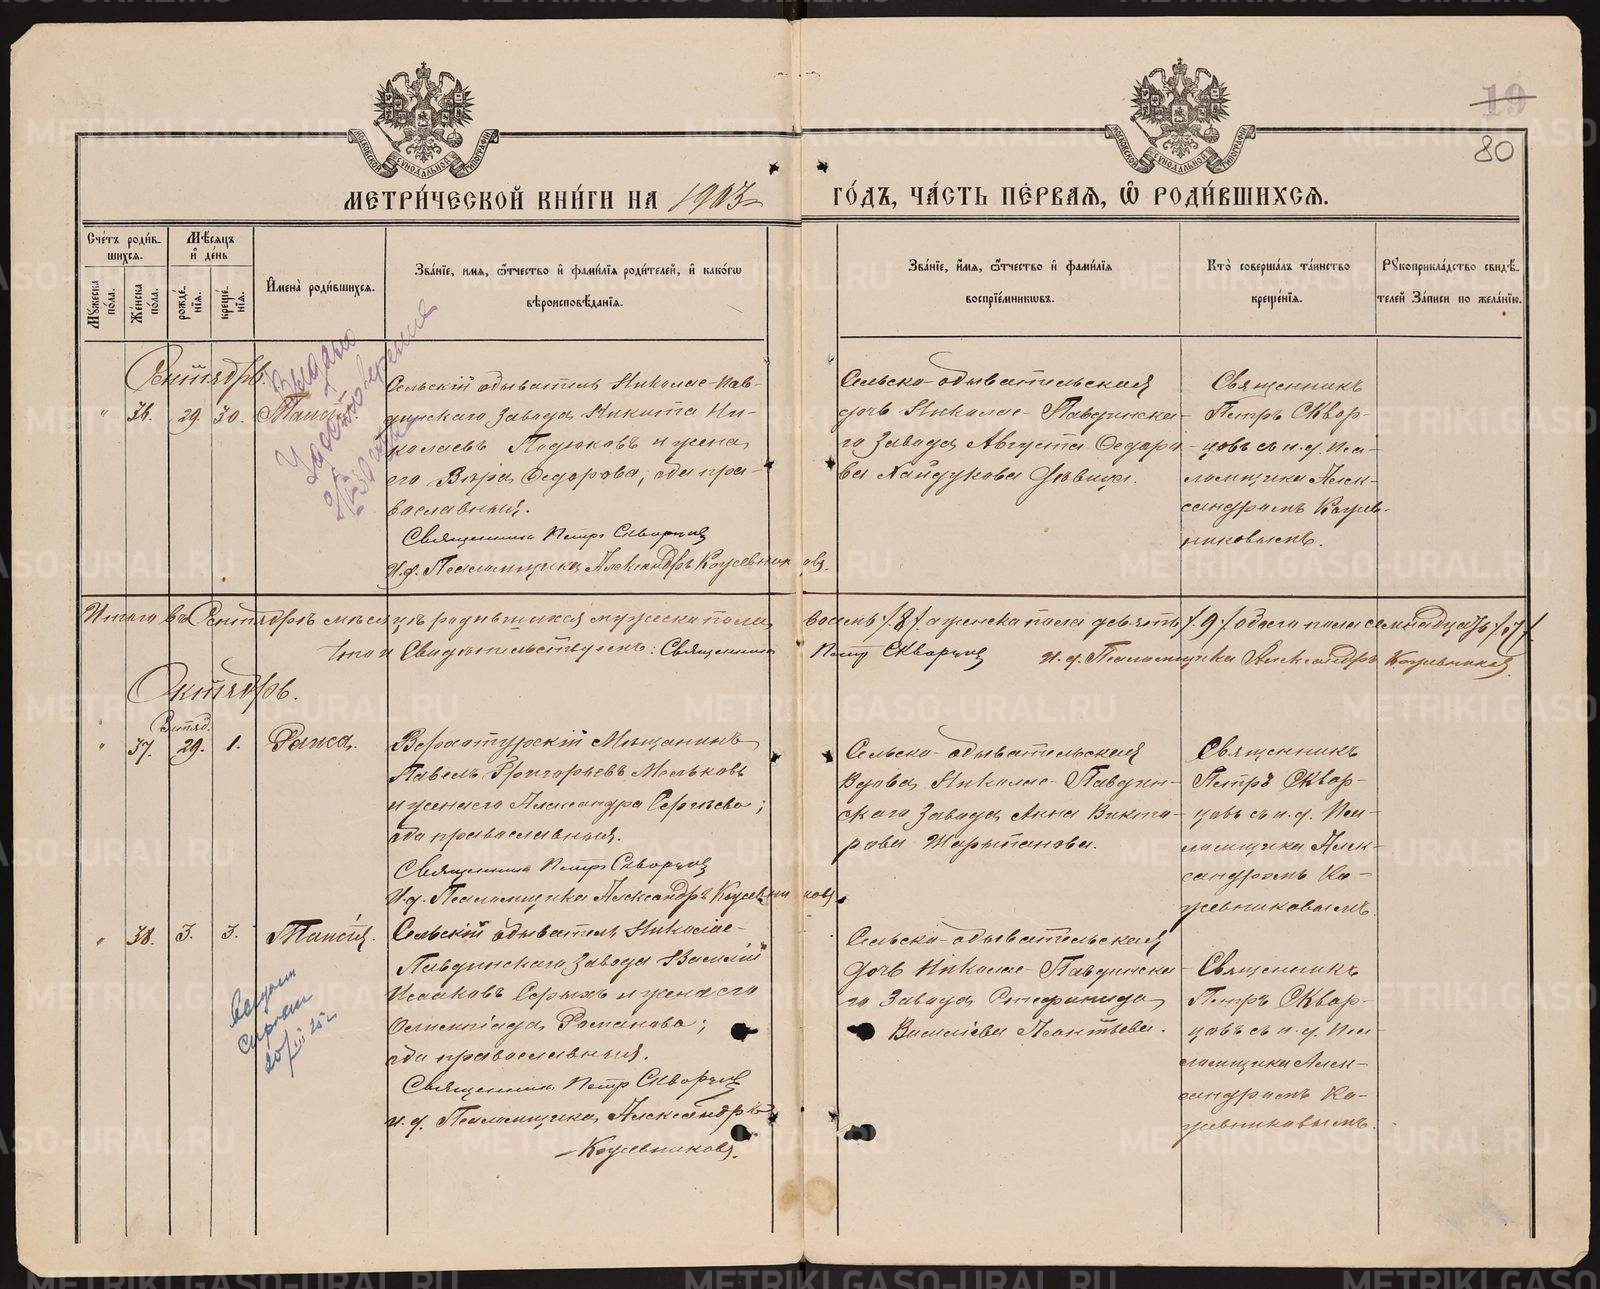 19
80
МЕТРИ́ЧЕСКОЙ КНИ́ГИ НА 1903
ГО́ДЪ, ЧА́СТЬ ПЕ́РВАѦ, Ѡ РОДИ́ВШИХСѦ.
Сче́тъ роди́в-
шихсѧ.
Мѣ́сѧцъ
и҆ де́нь
Мꙋ́жеска
по́ла.
Же́нска
по́ла.
рожде́-
нїѧ.
креще́-
нїѧ.
И҆мена̀ роди́вшихсѧ.
Зва́нїе, и҆́мѧ, ѻ҆́тчество и҆ фами́лїѧ роди́телей, и҆ како́гѡ
вѣроисповѣ́данїѧ.
Зва́нїе, и҆́мѧ, ѻ҆́тчество и҆ фами́лїѧ
воспрїе́мникѡвъ.
Кто̀ соверша́лъ та́инство
креще́нїѧ.
Рꙋкоприкла́дство свидѣ́-
телей За́писи по жела́нїю.
Сентябрь.
" 36. 29. 30. Таисія
Выдано
Удостоверение
Сельскій обыватель Николае-Пав-
динскаго завода Никита Ни-
колаевъ Подюковъ и жена
его Вѣра Ѳедорова, оба пра-
вославныя.
Священникъ Петръ Скворцовъ
И.д. Псаломщика Александръ Кожевниковъ.
Сельско-обывательская
дочь Николае-Павдинска-
го завода Августа Ѳедоро-
ва Хайдукова дѣвица.
Священникъ
Петръ Сквор-
цовъ съ и.д. Пса-
ломщика Алек-
сандромъ Кожев-
никовымъ.
Итого въ Сентябрѣ мѣсяцѣ родившихся мужеска пола восемь /8/ а женска пола девять /9/ обоего пола семнадцать /17/
Священникъ Петръ Скворцовъ и.д. Псаломщика Александръ Кожевниковъ.
Октябрь.
Сентяб.
" 37. 29. 1. Раиса.
Верхотурскій Мѣщанинъ
Павелъ Григорьевъ Мельковъ
и жена его Александра Сергѣева;
оба православныя.
Священникъ Петръ Скворцовъ
И.д. Псаломщика Александръ Кожевниковъ.
Сельско-обывательская
Вдова Николае-Павдин-
скаго завода Анна Викто-
рова Шарыпанова.
Священникъ
Петръ Сквор-
цовъ съ и.д. Пса-
ломщика Алек-
сандромъ Ко-
жевниковымъ.
" 38. 3. 3. Таисія.
Сельскій обыватель Николае-
Павдинскаго завода Василій
Исааковъ Серыхъ и жена его
Олимпіада Романова;
оба православныя.
Священникъ Петръ Скворцовъ
и.д. Псаломщика Александръ
Кожевниковъ.
Сельско-обывательская
дочь Николае-Павдинска-
го завода Стефанида
Василіева Леонтьева.
Священникъ
Петръ Сквор-
цовъ съ и.д. Пса-
ломщика Алек-
сандромъ Ко-
жевниковымъ.
METRIKI.GASO-URAL.RU